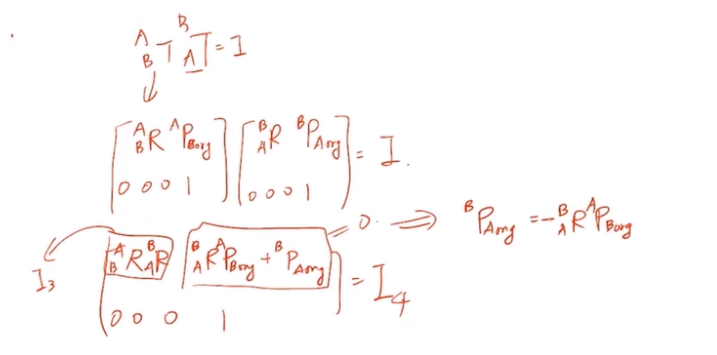 {}^{A}_{B}T {}^{B}_{A}T = I
[ {}^{A}_{B}R {}^{A}P_{Borg} ; 0 0 0 1 ] [ {}^{B}_{A}R {}^{B}P_{Aorg} ; 0 0 0 1 ] = I.
[ {}^{A}_{B}R {}^{B}_{A}R {}^{B}_{A}R {}^{A}P_{Borg} + {}^{B}P_{Aorg} ; 0 0 0 1 ] = I_4
I_3
= 0. ⇒ {}^{B}P_{Aorg} = -{}^{B}_{A}R {}^{A}P_{Borg}